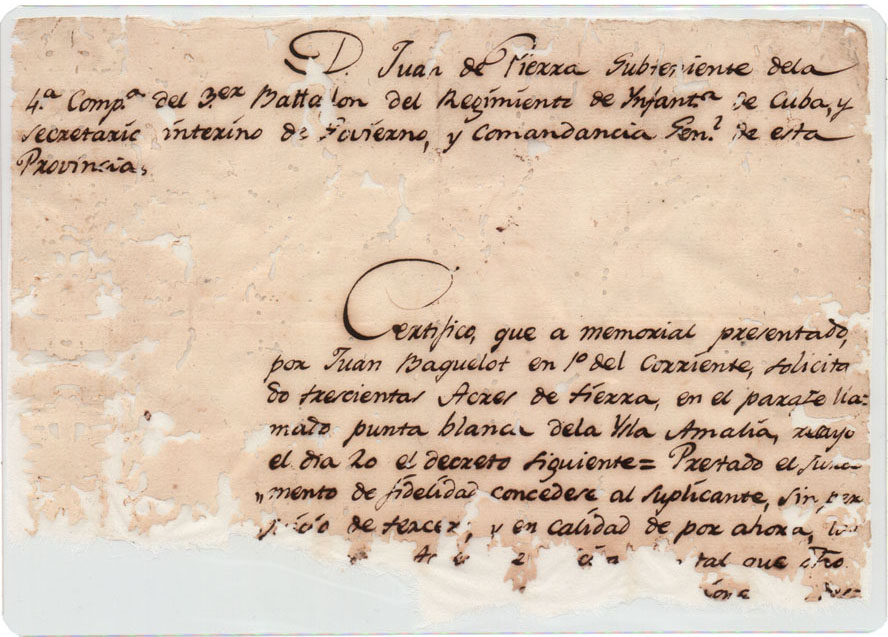 D. Juan de Pierra Subteniente dela
4.ª Comp.ª del 3.er Battalon del Regimiento de Ynfant.ª de Cuba, y
secretario interino de Govierno, y Comandancia Gen.l de esta
Provincia.
Certifico, que a memorial presentado,
por Juan Baguelot en 1º del Corriente, solicita
do trescientas Acres de tierra, en el parage lla=
mado punta blanca dela Ysla Amalia, recayo
el dia 20 el decreto siguiente= Prestado el jura
mento de fidelidad concedese al suplicante, sin per
juicio de tercero; y en calidad de por ahora, las
tal que otro